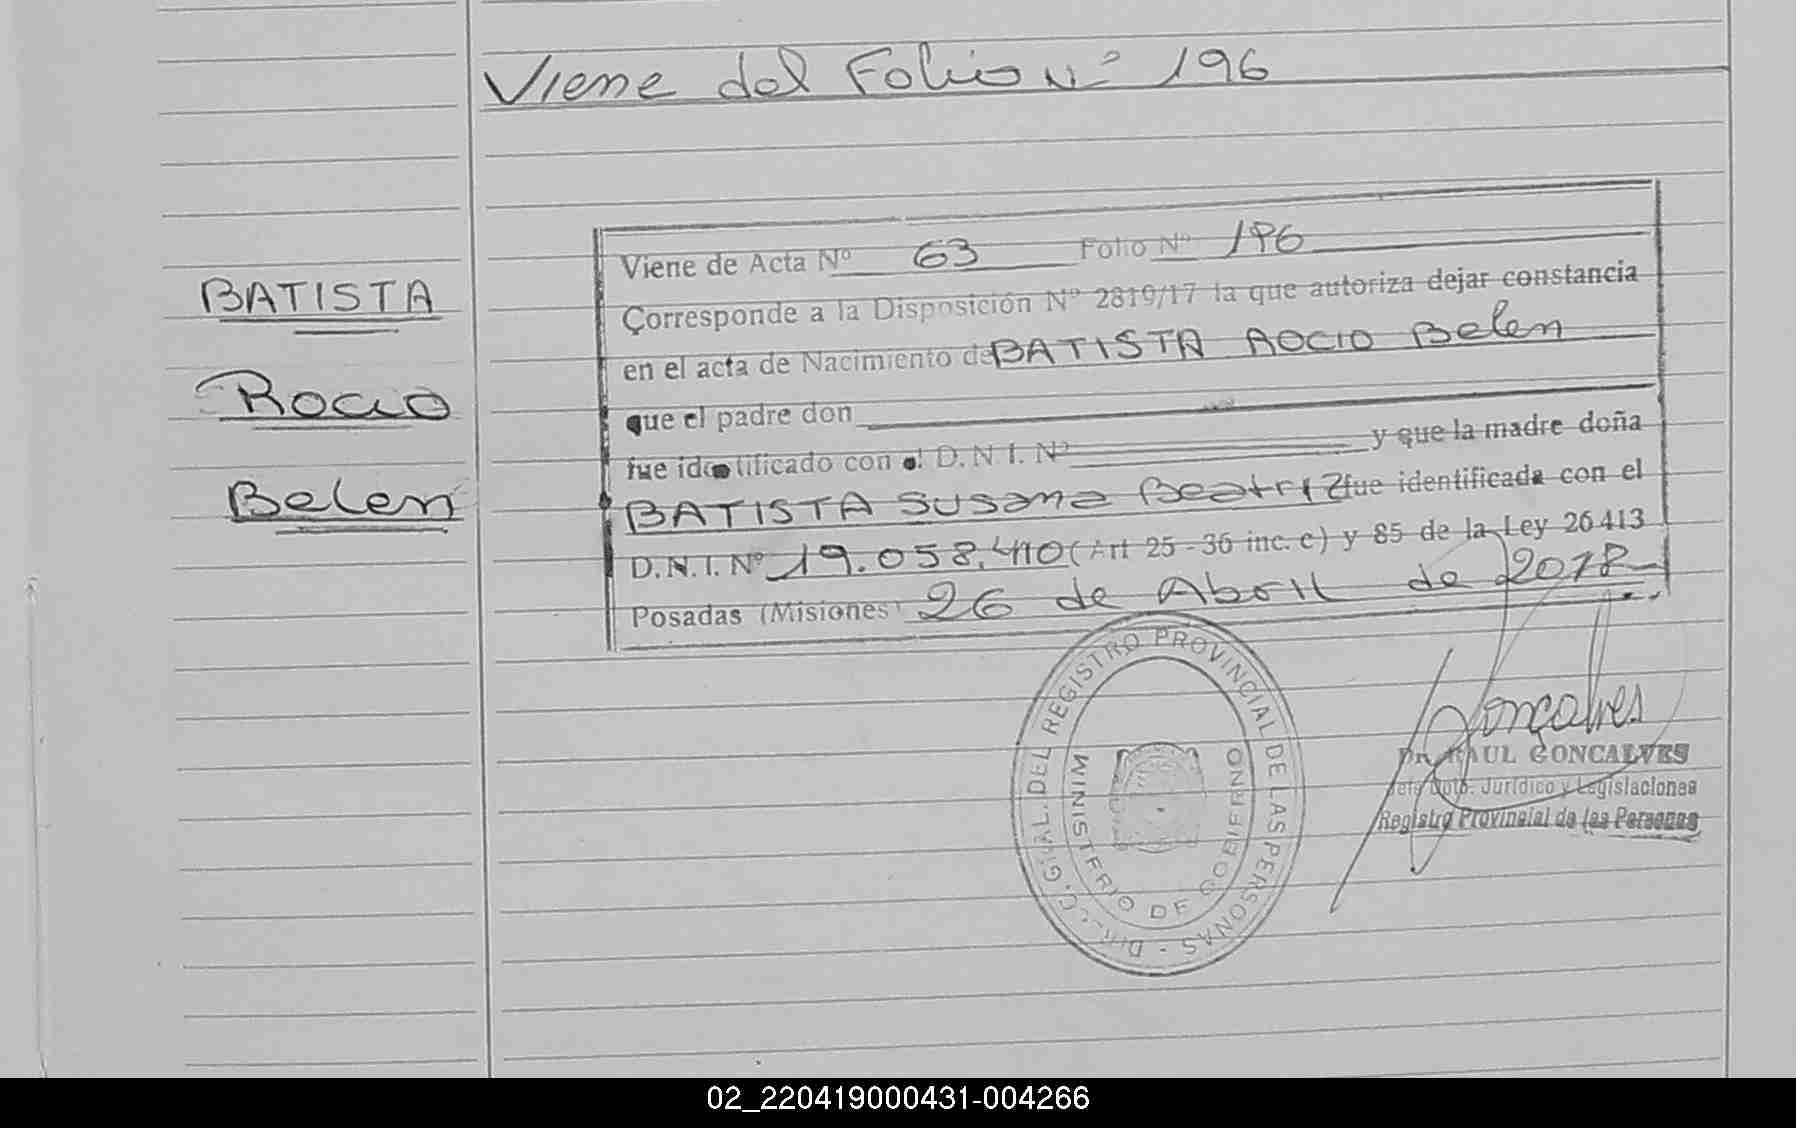 Viene del Folio Nº 196
BATISTA
Rocio
Belen
Viene de Acta Nº 63 Folio Nº 196
Corresponde a la Disposición Nº 2819/17 la que autoriza dejar constancia
en el acta de Nacimiento de BATISTA ROCIO Belen
que el padre don
fue identificado con el D.N.I. Nº y que la madre doña
BATISTA SUSANA Beatriz fue identificada con el
D.N.I. Nº 19.058.410 (Art 25 - 36 inc. c) y 85 de la Ley 26413
Posadas (Misiones) 26 de Abril de 2018
REGISTRO PROVINCIAL DE LAS PERSONAS
MINISTERIO DE GOBIERNO
Gonçalves
Dr. RAUL GONCALVES
Jefe Dpto. Jurídico y Legislaciones
Registro Provincial de las Personas
02_220419000431-004266